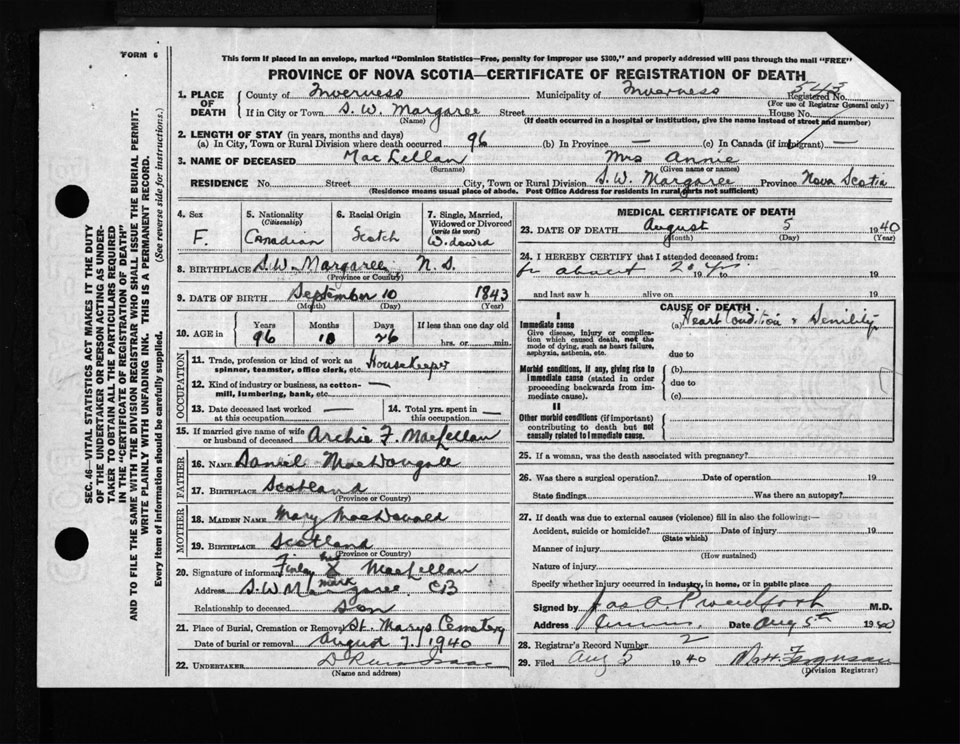 FORM 6
This form if placed in an envelope, marked "Dominion Statistics—Free, penalty for improper use $300," and properly addressed will pass through the mail "FREE"
PROVINCE OF NOVA SCOTIA—CERTIFICATE OF REGISTRATION OF DEATH
SEC. 46—VITAL STATISTICS ACT MAKES IT THE DUTY
OF THE UNDERTAKER OR PERSON ACTING AS UNDER-
TAKER TO OBTAIN ALL THE PARTICULARS REQUIRED
IN THE "CERTIFICATE OF REGISTRATION OF DEATH"
AND TO FILE THE SAME WITH THE DIVISION REGISTRAR WHO SHALL ISSUE THE BURIAL PERMIT.
WRITE PLAINLY WITH UNFADING INK. THIS IS A PERMANENT RECORD.
Every item of information should be carefully supplied. (See reverse side for instructions.)
1. PLACE OF DEATH
County of Inverness Municipality of Inverness Registered No. 543
(For use of Registrar General only)
If in City or Town S. W. Margaree Street House No.
(Name) (If death occurred in a hospital or institution, give the name instead of street and number)
2. LENGTH OF STAY (in years, months and days)
(a) In City, Town or Rural Division where death occurred 96 (b) In Province — (c) In Canada (if immigrant) —
3. NAME OF DECEASED MacLellan Mrs Annie
(Surname) (Given name or names)
RESIDENCE No. Street City, Town or Rural Division S. W. Margaree Province Nova Scotia
(Residence means usual place of abode. Post Office Address for residents in rural parts not sufficient)
4. Sex
F.
5. Nationality
(Citizenship)
Canadian
6. Racial Origin
Scotch
7. Single, Married,
Widowed or Divorced
(write the word)
Widowed
8. BIRTHPLACE S. W. Margaree N. S.
(Province or Country)
9. DATE OF BIRTH September 10 1843
(Month) (Day) (Year)
10. AGE in
Years Months Days If less than one day old
96 10 26 hrs. or min.
OCCUPATION
11. Trade, profession or kind of work as
spinner, teamster, office clerk, etc. Housekeeper
12. Kind of industry or business, as cotton-
mill, lumbering, bank, etc. —
13. Date deceased last worked
at this occupation —
14. Total yrs. spent in
this occupation —
15. If married give name of wife
or husband of deceased Archie F. MacLellan
FATHER
16. NAME Daniel MacDougall
17. BIRTHPLACE Scotland
(Province or Country)
MOTHER
18. MAIDEN NAME Mary MacDonald
19. BIRTHPLACE Scotland
(Province or Country)
20. Signature of informant Finlay his X mark MacLellan
Address S. W. Margaree CB
Relationship to deceased Son
21. Place of Burial, Cremation or Removal St. Marys Cemetery
Date of burial or removal August 7, 1940
22. UNDERTAKER
(Name and address)
MEDICAL CERTIFICATE OF DEATH
23. DATE OF DEATH August 5 1940
(Month) (Day) (Year)
24. I HEREBY CERTIFY that I attended deceased from:
for about 2 19 to 19
and last saw h alive on 19
CAUSE OF DEATH
I
Immediate cause
Give disease, injury or complica-
tion which caused death, not the
mode of dying, such as heart failure,
asphyxia, asthenia, etc.
(a) Heart Condition & Senility
due to
Morbid conditions, if any, giving rise to
immediate cause (stated in order
proceeding backwards from im-
mediate cause).
(b)
due to
(c)
II
Other morbid conditions (if important)
contributing to death but not
causally related to immediate cause.
25. If a woman, was the death associated with pregnancy?
26. Was there a surgical operation? Date of operation 19
State findings Was there an autopsy?
27. If death was due to external causes (violence) fill in also the following:—
Accident, suicide or homicide? Date of injury 19
(State which)
Manner of injury
(How sustained)
Nature of injury
Specify whether injury occurred in industry, in home, or in public place
Signed by Jas A Proudfoot M.D.
Address Inverness, Date Aug 5th 1940
28. Registrar's Record Number 2
29. Filed Aug 5 1940 Ferguson
(Division Registrar)